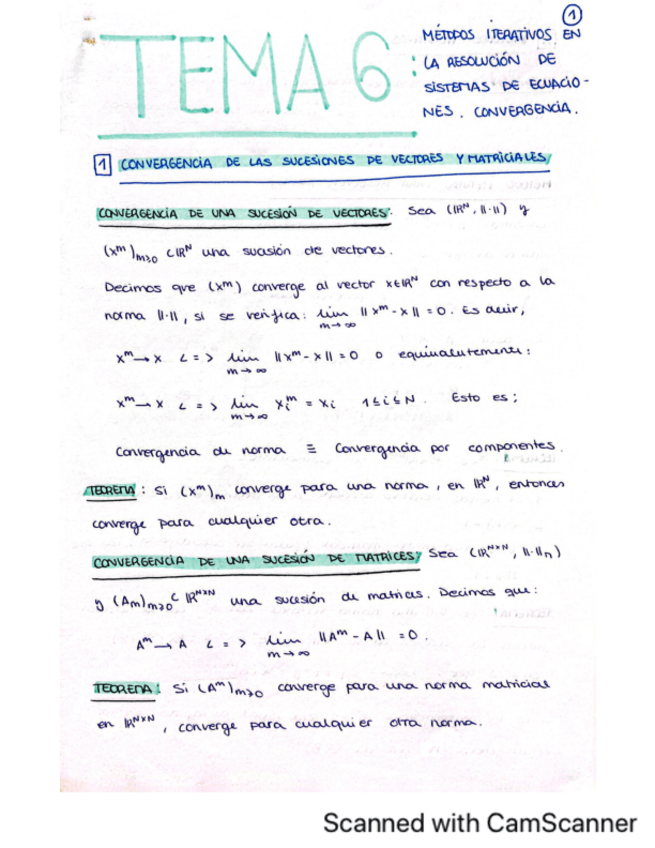 1
TEMA 6:
MÉTODOS ITERATIVOS EN
LA RESOLUCIÓN DE
SISTEMAS DE ECUACIO-
NES. CONVERGENCIA.
1 CONVERGENCIA DE LAS SUCESIONES DE VECTORES Y MATRICIALES
CONVERGENCIA DE UNA SUCESIÓN DE VECTORES: Sea (ℝᴺ, ‖·‖) y
(xᵐ)ₘ≥₀ ⊂ ℝᴺ una sucesión de vectores.
Decimos que (xᵐ) converge al vector x∈ℝᴺ con respecto a la
norma ‖·‖, si se verifica: lim ‖xᵐ - x‖ = 0. Es decir,
m→∞
xᵐ → x <=> lim ‖xᵐ - x‖ = 0 o equivalentemente:
m→∞
xᵐ → x <=> lim xᵢᵐ = xᵢ 1≤i≤N. Esto es:
m→∞
Convergencia de norma ≡ Convergencia por componentes.
TEOREMA: Si (xᵐ)ₘ converge para una norma, en ℝᴺ, entonces
converge para cualquier otra.
CONVERGENCIA DE UNA SUCESIÓN DE MATRICES: Sea (ℝᴺˣᴺ, ‖·‖ₙ)
y (Am)ₘ≥₀ ⊂ ℝᴺˣᴺ una sucesión de matrices. Decimos que:
Aᵐ → A <=> lim ‖Aᵐ - A‖ = 0.
m→∞
TEOREMA: Si (Aᵐ)ₘ≥₀ converge para una norma matricial
en ℝᴺˣᴺ, converge para cualquier otra norma.
Scanned with CamScanner